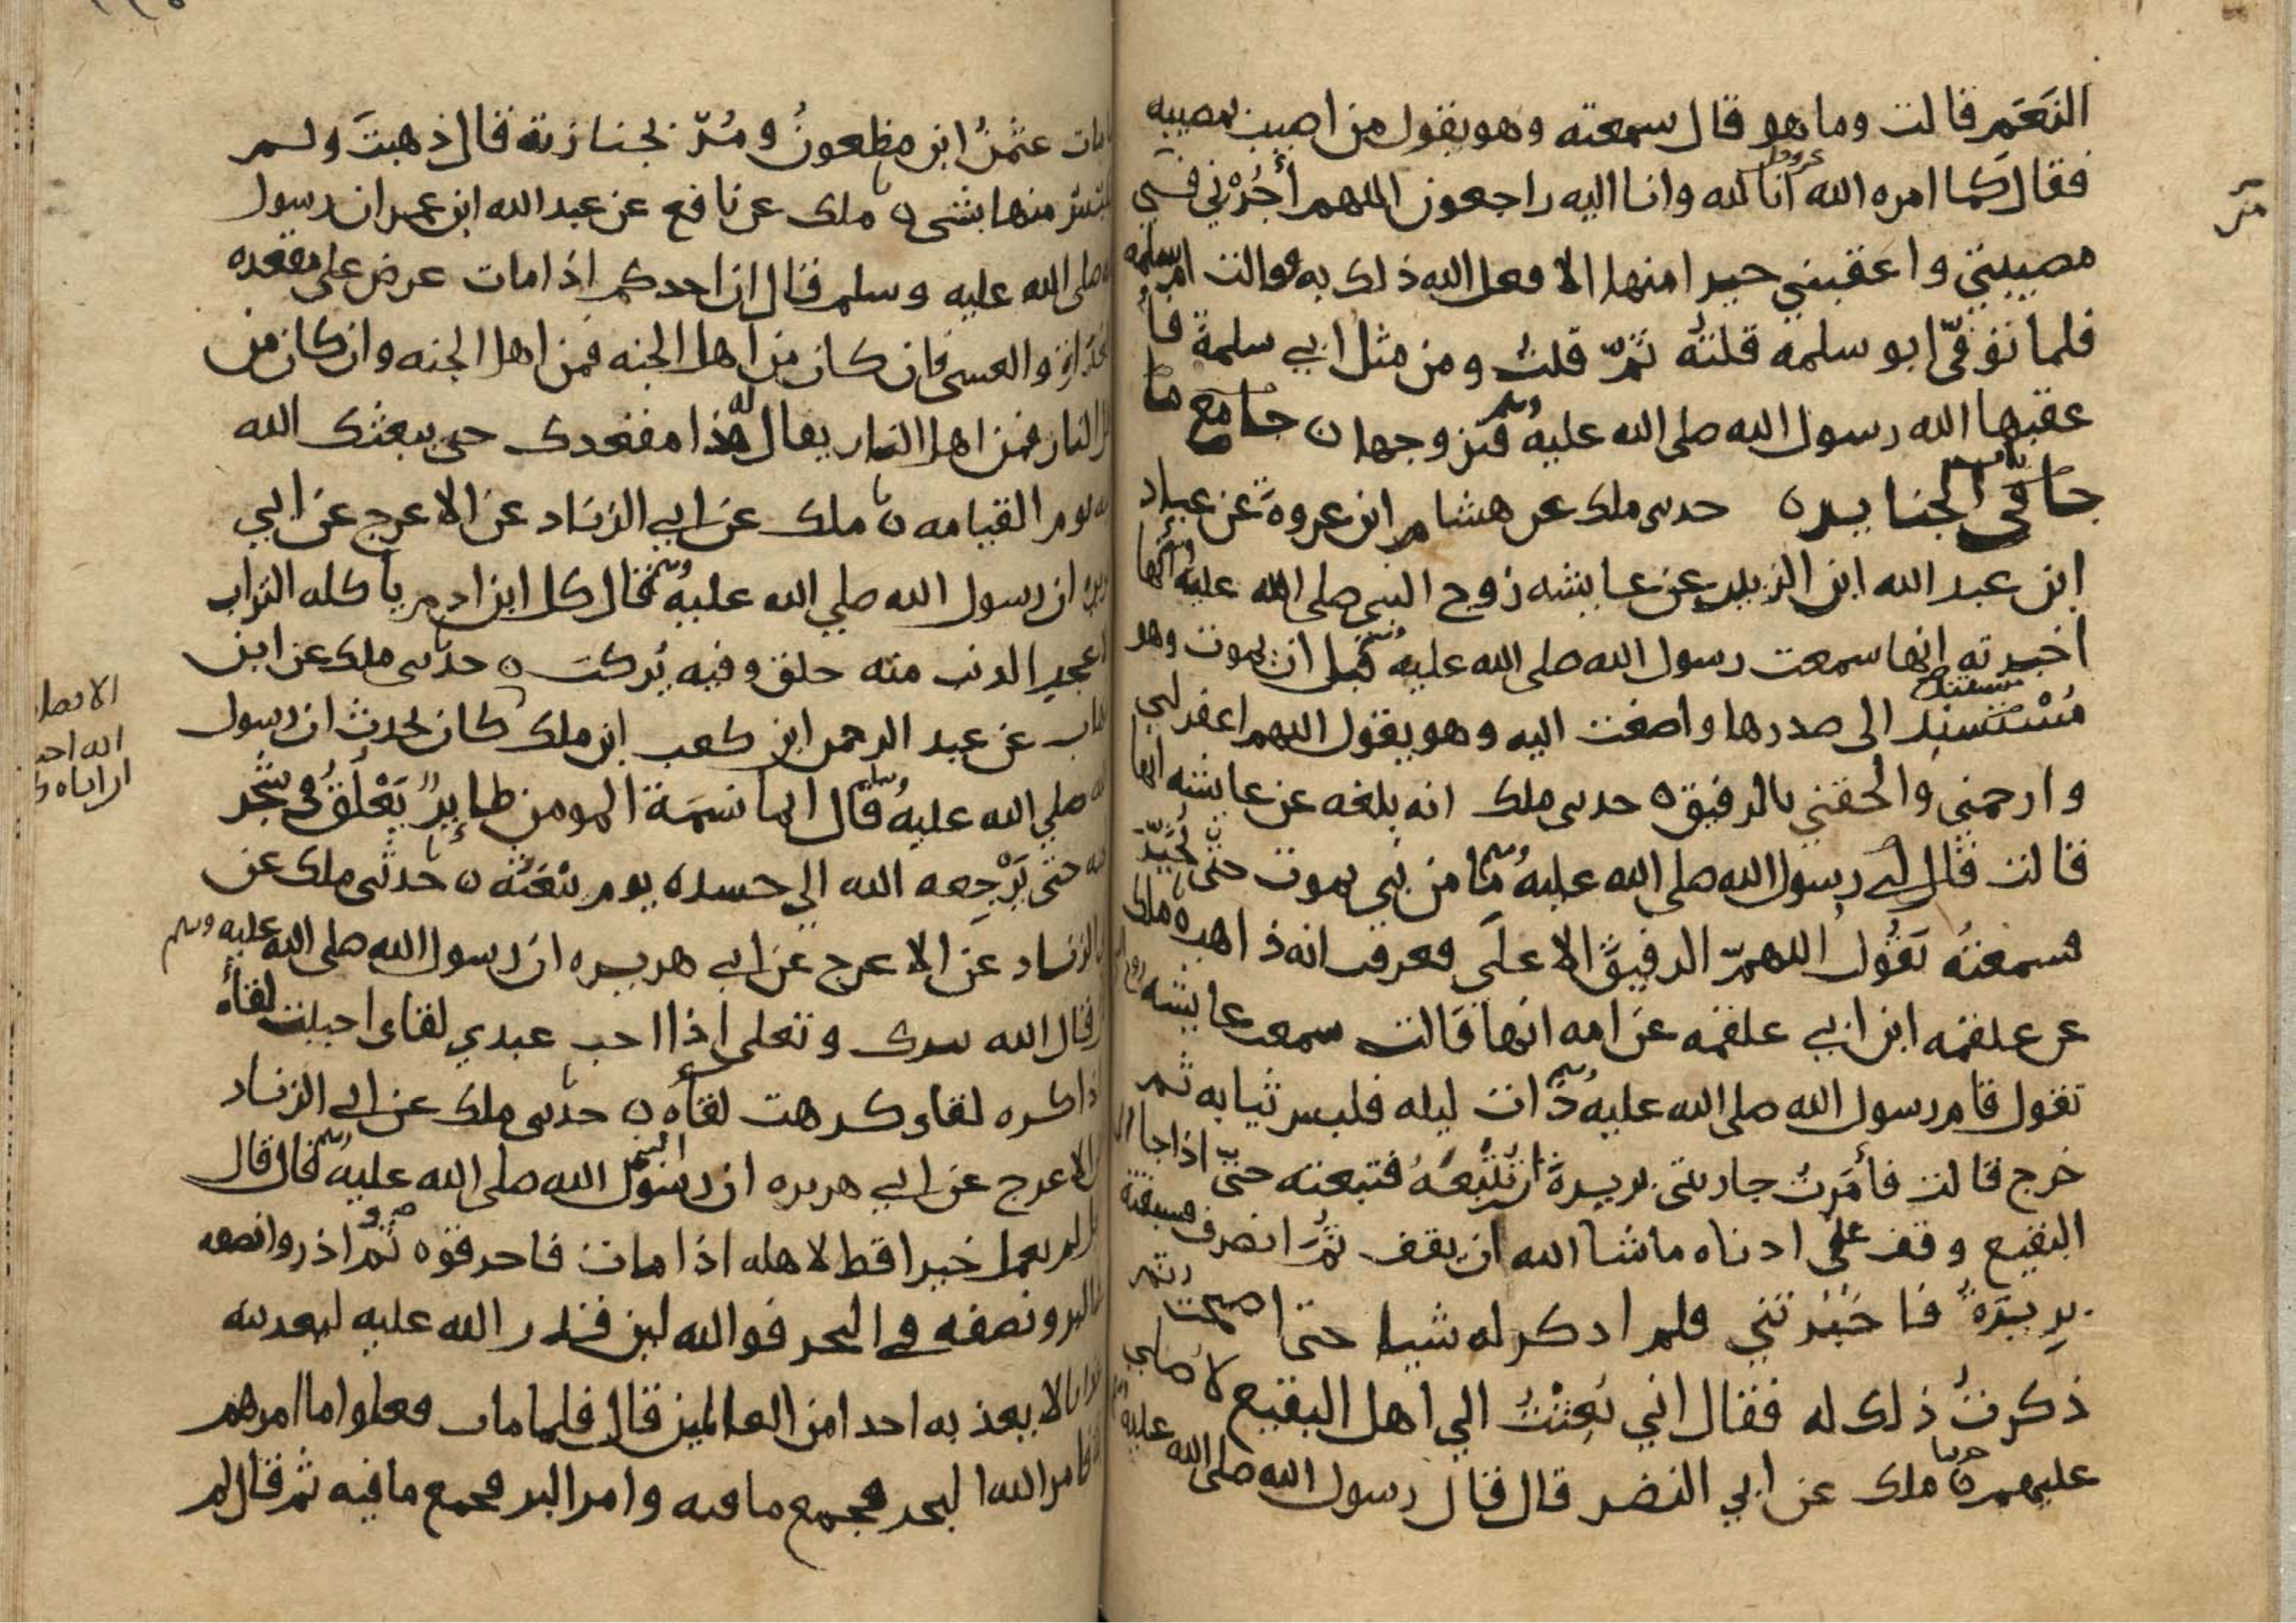 النَعَم قالت وما هو قال سمعته وهو يقول من اصيب بمصيبه
فقال كما امره الله انا لله وانا اليه راجعون اللهم أجُرْني في
مصيبتي واعقبني خيرا منها الا فعل الله ذلك به وقالت ام سلمه
فلما تُوفّى ابو سلمه قلتُه ثمّ قلتُ ومن مثل ابي سلمة فأ
عقبها الله رسول الله صلى الله عليه وسلم فتزوجها ن جامع ما
جا في الجنايز ن حدثني ملك عن هشام ابن عروة عن عباد
ابن عبد الله ابن الزبير عن عايشه زوج النبي صلى الله عليه وسلم انها
اخبرته انها سمعت رسول الله صلى الله عليه وسلم قبل ان يموت وهو
مُسْتَسنِد الى صدرها واصغت اليه وهو يقول اللهم اغفر لي
وارحمني والحقني بالرفيق ه حدثني ملك انه بلغه عن عايشه انها
قالت قال لي رسول الله صلى الله عليه وسلم ما من نبي يموت حتى يُخَيّر
فسمعتُه يَقُول اللهمّ الرفيقَ الاعلَى فعرفت انه ذاهب ه ملك
عن علقمه ابن ابي علقمه عن امه انها قالت سمعت عايشه زوج
تقول قام رسول الله صلى الله عليه وسلم ذات ليله فلبس ثيابه ثم
خرج قالت فأمَرتُ جاريتي بريرة ان تَتْبَعَهُ فتبعته حتى اذا جا
البقيع وقف على ادناه ما شا الله ان يقف ثمّ انصرف فسبقته
بريرَةُ فاخبرتني فلم اذكر له شيا حتى اصبحت ثم
ذكرتُ ذلك له فقال اني بُعِثْتُ الي اهل البقيع لاصلي
عليهم ن ملك عن ابي النضر قال قال رسول الله صلى الله عليه
مات عثمنُ ابن مظعون ومُرّ بجنازته قال ذهبتَ ولم
تلتبس منها بشي ن ملك عن نافع عن عبد الله ابن عمر ان رسول
صلى الله عليه وسلم قال ان احدكم اذا مات عرض على مقعده
بالغداة والعسى فان كان من اهل الجنه فمن اهل الجنه وان كان من
النار فمن اهل النار يقال له هذا مقعدك حتى يبعثك الله
يوم القيامه ن ملك عن ابي الزناد عن الاعرج عن ابي
ان رسول الله صلي الله عليه وسلم قال كل ابن ادم ياكله التراب
عجب الذنب منه خلق وفيه يُركبَ ن حدثني ملك عن ابن
عن عبد الرحمن ابن كعب ابن ملك كان يحدث ان رسول
صلي الله عليه وسلم قال انما نسَمَة المومن طايرٌ يَعْلَقُ في شجر
حتى يَرْجِعه الله الي جسده يوم يبعثه ن حدثنى ملك عن
الزناد عن الاعرج عن ابي هريره ان رسول الله صلى الله عليه وسلم
قال الله تبرك وتعلى اذا احب عبدي لقاى احببت لقاه
اذا كره لقاى كرهت لقاه ن حدثني ملك عن ابي الزناد
الاعرج عن ابي هريره ان رسول الله صلى الله عليه وسلم قال قال
لم يعمل خيرا قط لاهله اذا مات فاحرقوه ثم اذروا نصفه
البر ونصفه في البحر فوالله لين قدر الله عليه ليعذبنه
لا يعذبه احدا من العالمين قال فلما مات فعلوا ما امرهم
فامر الله البحر فجمع ما فيه وامر البر فجمع ما فيه ثم قال لم